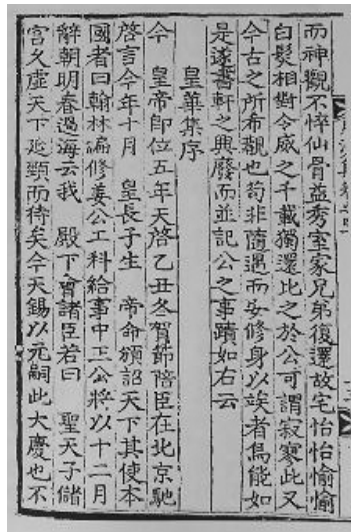 而神觀不悴仙骨益秀室家兄弟復還故宅怡怡愉愉
白髮相對令威之千載獨還比之於公可謂寂寥此又
今古之所希觀也苟非隨遇而安修身以竢者焉能如
是遂書軒之興廢而並記公之事蹟如右云
皇華集序
今 皇帝卽位五年天啓乙丑冬賀節陪臣在北京馳
啓言今年十月 皇長子生 帝命頒詔天下其使本
國者曰翰林編修姜公工科給事中王公將以十二月
辭朝明春過海云我 殿下會諸臣若曰 聖天子儲
宮久虛天下延頸而待矣今天錫以元嗣此大慶也不